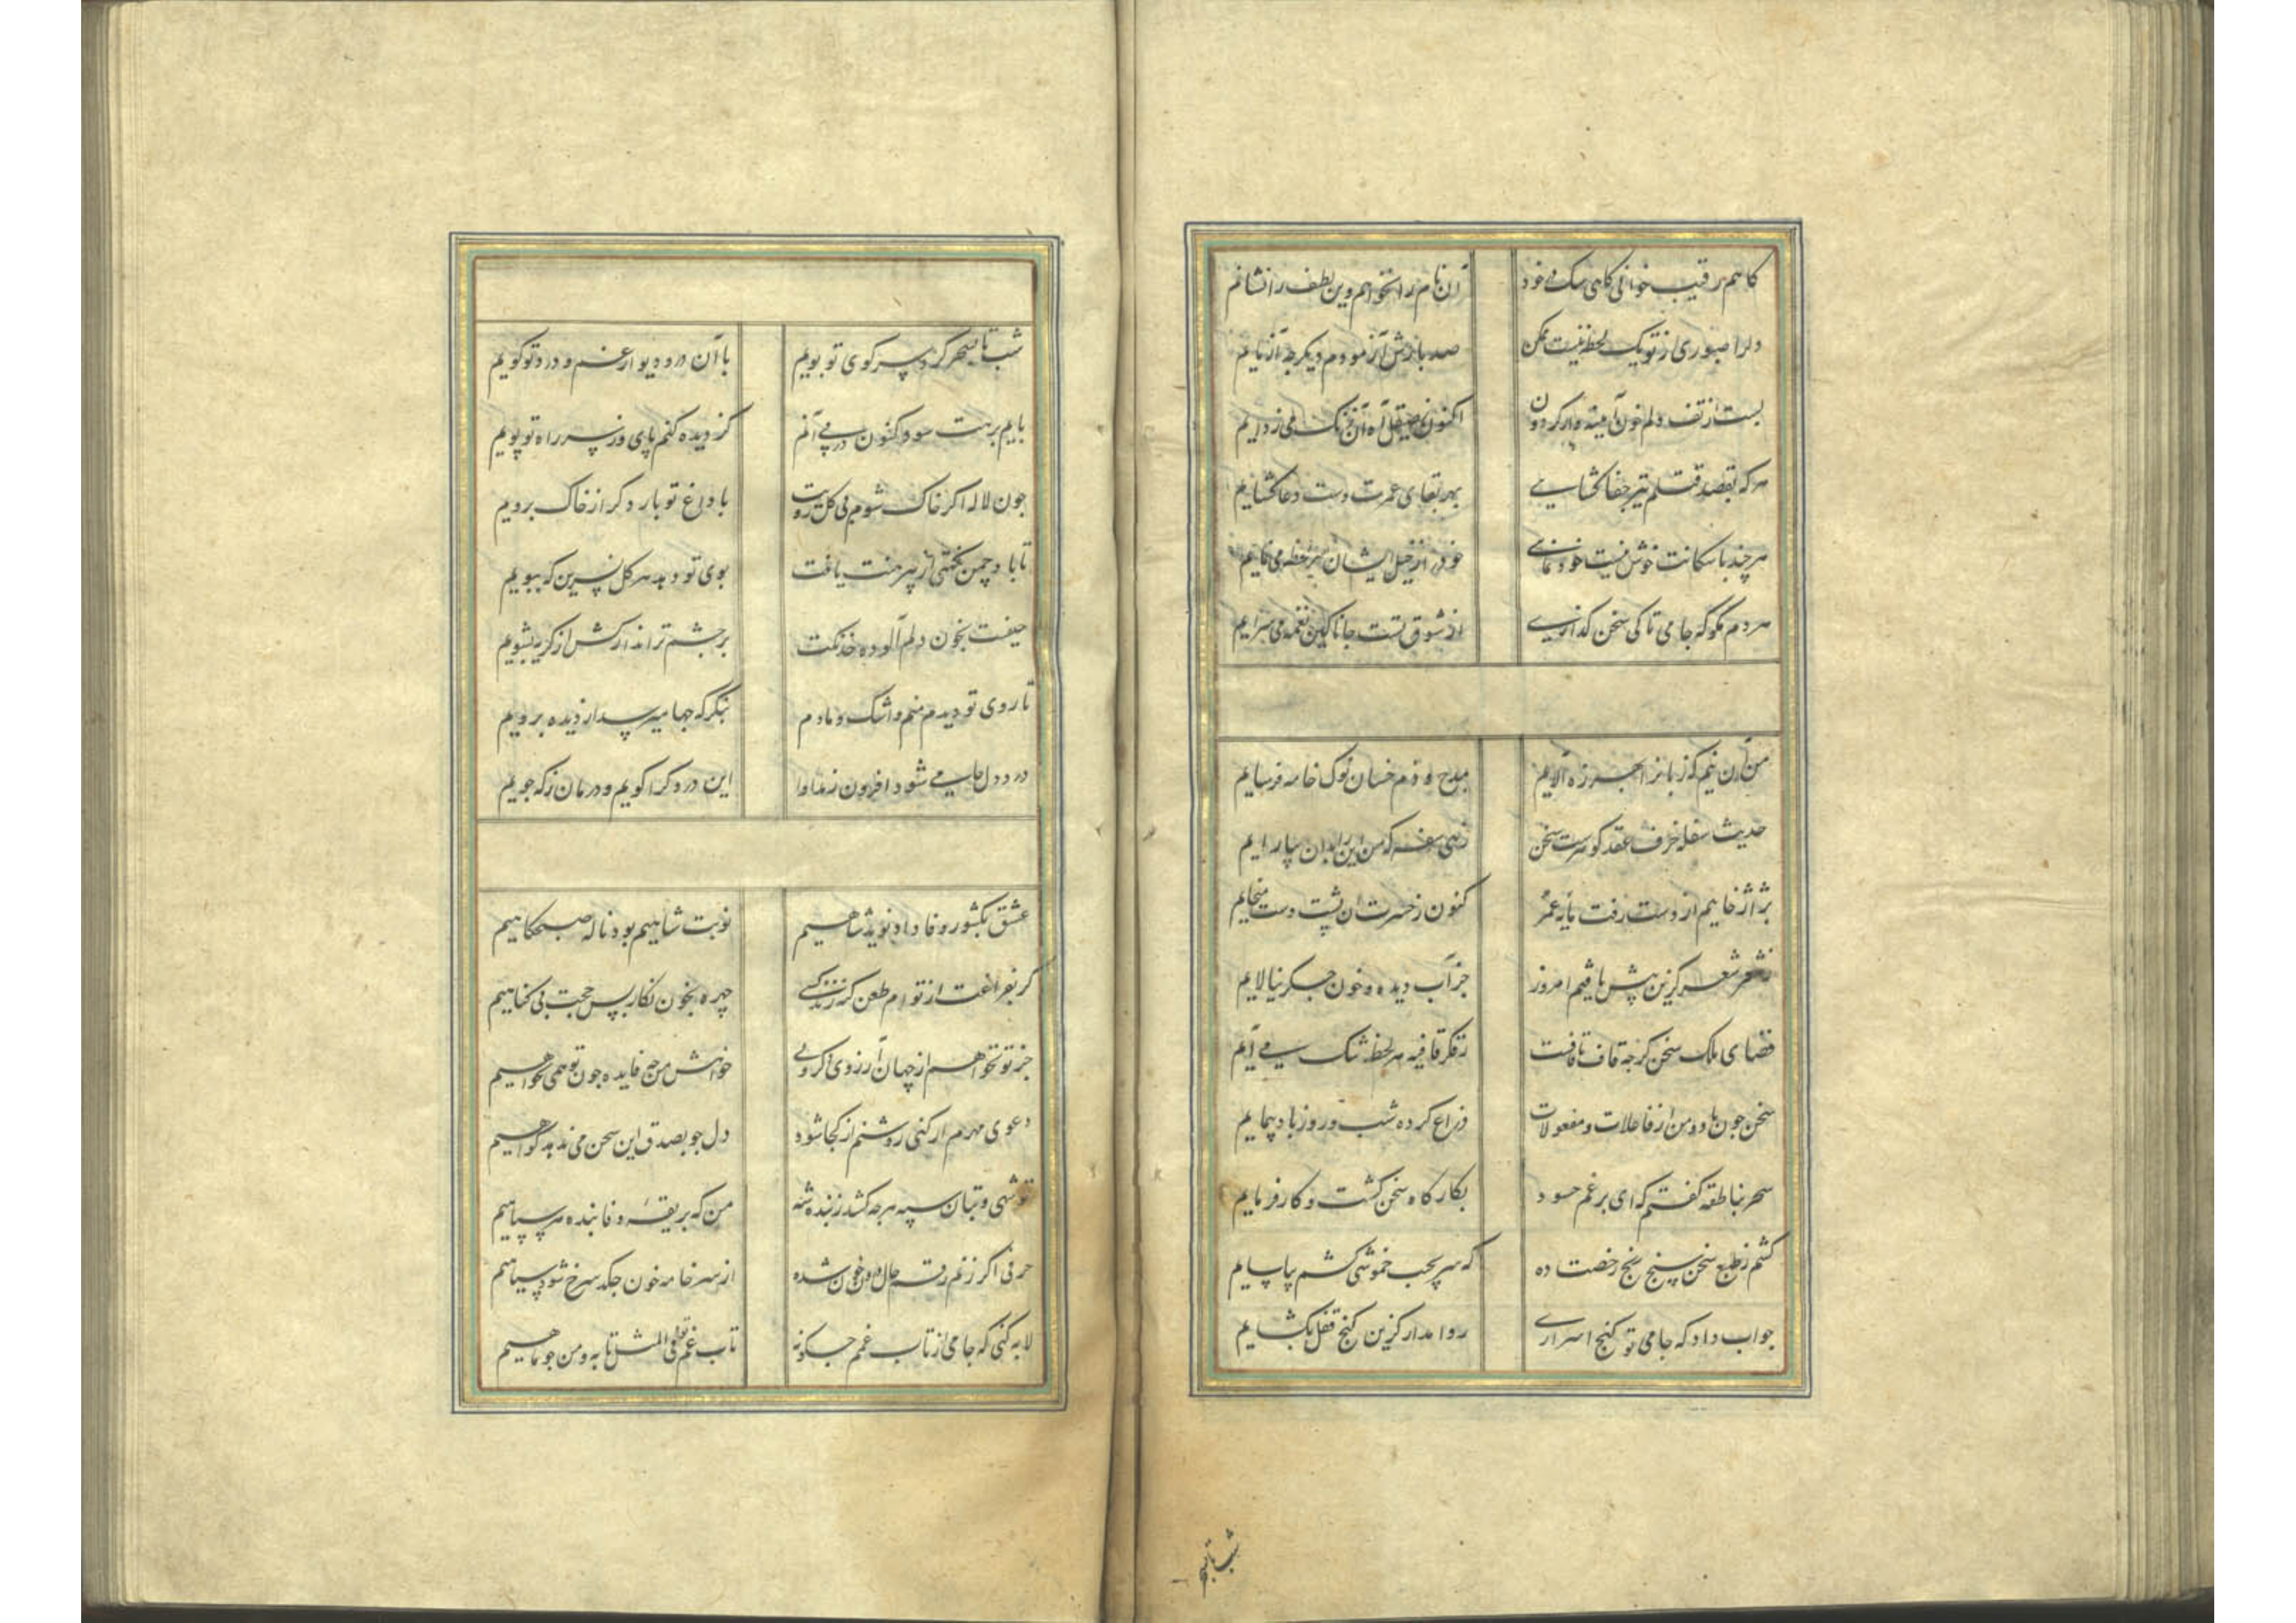 کاهم رقیب خوانی کاهی سک در خود آن نام را نخواهم وین لطف را نشانم
دلرا صبوری از تو یک لحظه نیست ممکن صد بارش آزمودم دیکر چه آزمایم
بست از تف دلم خون آیینه وار کردون اکنون بصیقل آه آن زنک می زدایم
هر که بقصد قتلم تیر جفا کشایی بهر بقای عمرت دست دعا کشایم
هر چند با سکانت خوش نیست خودنمایی خود را ز خیل ایشان هر لحظه می نمایم
هر دم مکو که جامی تا کی سخن کذاری از شوق تست جانا کین نغمه می سرایم
من آن نیم که زبانرا بهرزه آلایم بمدح و ذم خسان نوک خامه فرسایم
حدیث سفله خزف عقد کوهرست سخن زهی سفه که من این را بدان بیارایم
بژاژ خاییم از دست رفت مایه عمر کنون ز حسرت آن پشت دست میخایم
ز شعر شعر کزین پیش بافتم امروز جز آب دیده و خون جکر نیالایم
فضای ملک سخن کرچه قاف تا قافست ز فکر قافیه هر لحظه تنک می آیم
سخن چون باد و من از فاعلات و مفعولات ذراع کرده شب و روز باد پیمایم
سحر بناطقه کفتم که ای برغم حسود بکارکاه سخن کشت و کار فرمایم
کشم ز طبع سخن سنج رنج رخصت ده که سر بجیب خموشی کشم بیاسایم
جواب داد که جامی تو کنج اسراری روا مدار کزین کنج قفل بکشایم
شب تا سحر
شب تا سحر کرد سر کوی تو بویم با آن در و دیوار غم و درد تو کویم
پایم برهت سود کنون در پی آنم کز دیده کنم پای و ز سر راه تو پویم
چون لاله اکر خاک شوم بی کل رویت با داغ تو بار دکر از خاک برویم
تا باد چمن نکهتی از پیرهنت یافت بوی تو دهد هر کل نسرین که ببویم
حیفست بخون دلم آلوده خدنکت بر چشم تر انداز کش از کریه بشویم
تا روی تو دیدم منم و اشک دمادم بنکر که چها میرسد از دیده برویم
درد دل جامی شود افزون ز مداوا این درد کرا کویم و درمان ز که جویم
عشق بکشور وفا داد نوید شاهیم نوبت شاهیم بود ناله صبحکاهیم
کر بفراغت از توام طعن کنند چهره بخون نکار بس حجت بی کناهیم
جز تو نخواهم از جهان آرزوی خواهش من چه فایده چون تو نمی خواهیم
دعوی مهرم ار کنی روشنم از کجا شود دل چو بصدق این سخن می ندهد کواهیم
تو شهی و بتان سپه هر چه کشد ز بنده شه من که بریقه وفا بنده هر سپاهیم
حرفی اکر رقم حال درون خون شده از سر خامه خون چکد سرخ شود سیاهیم
لابه کنی که جامی از تاب غمم چکونه تاب غم تو فی المثل تابه و من چو ماهیم